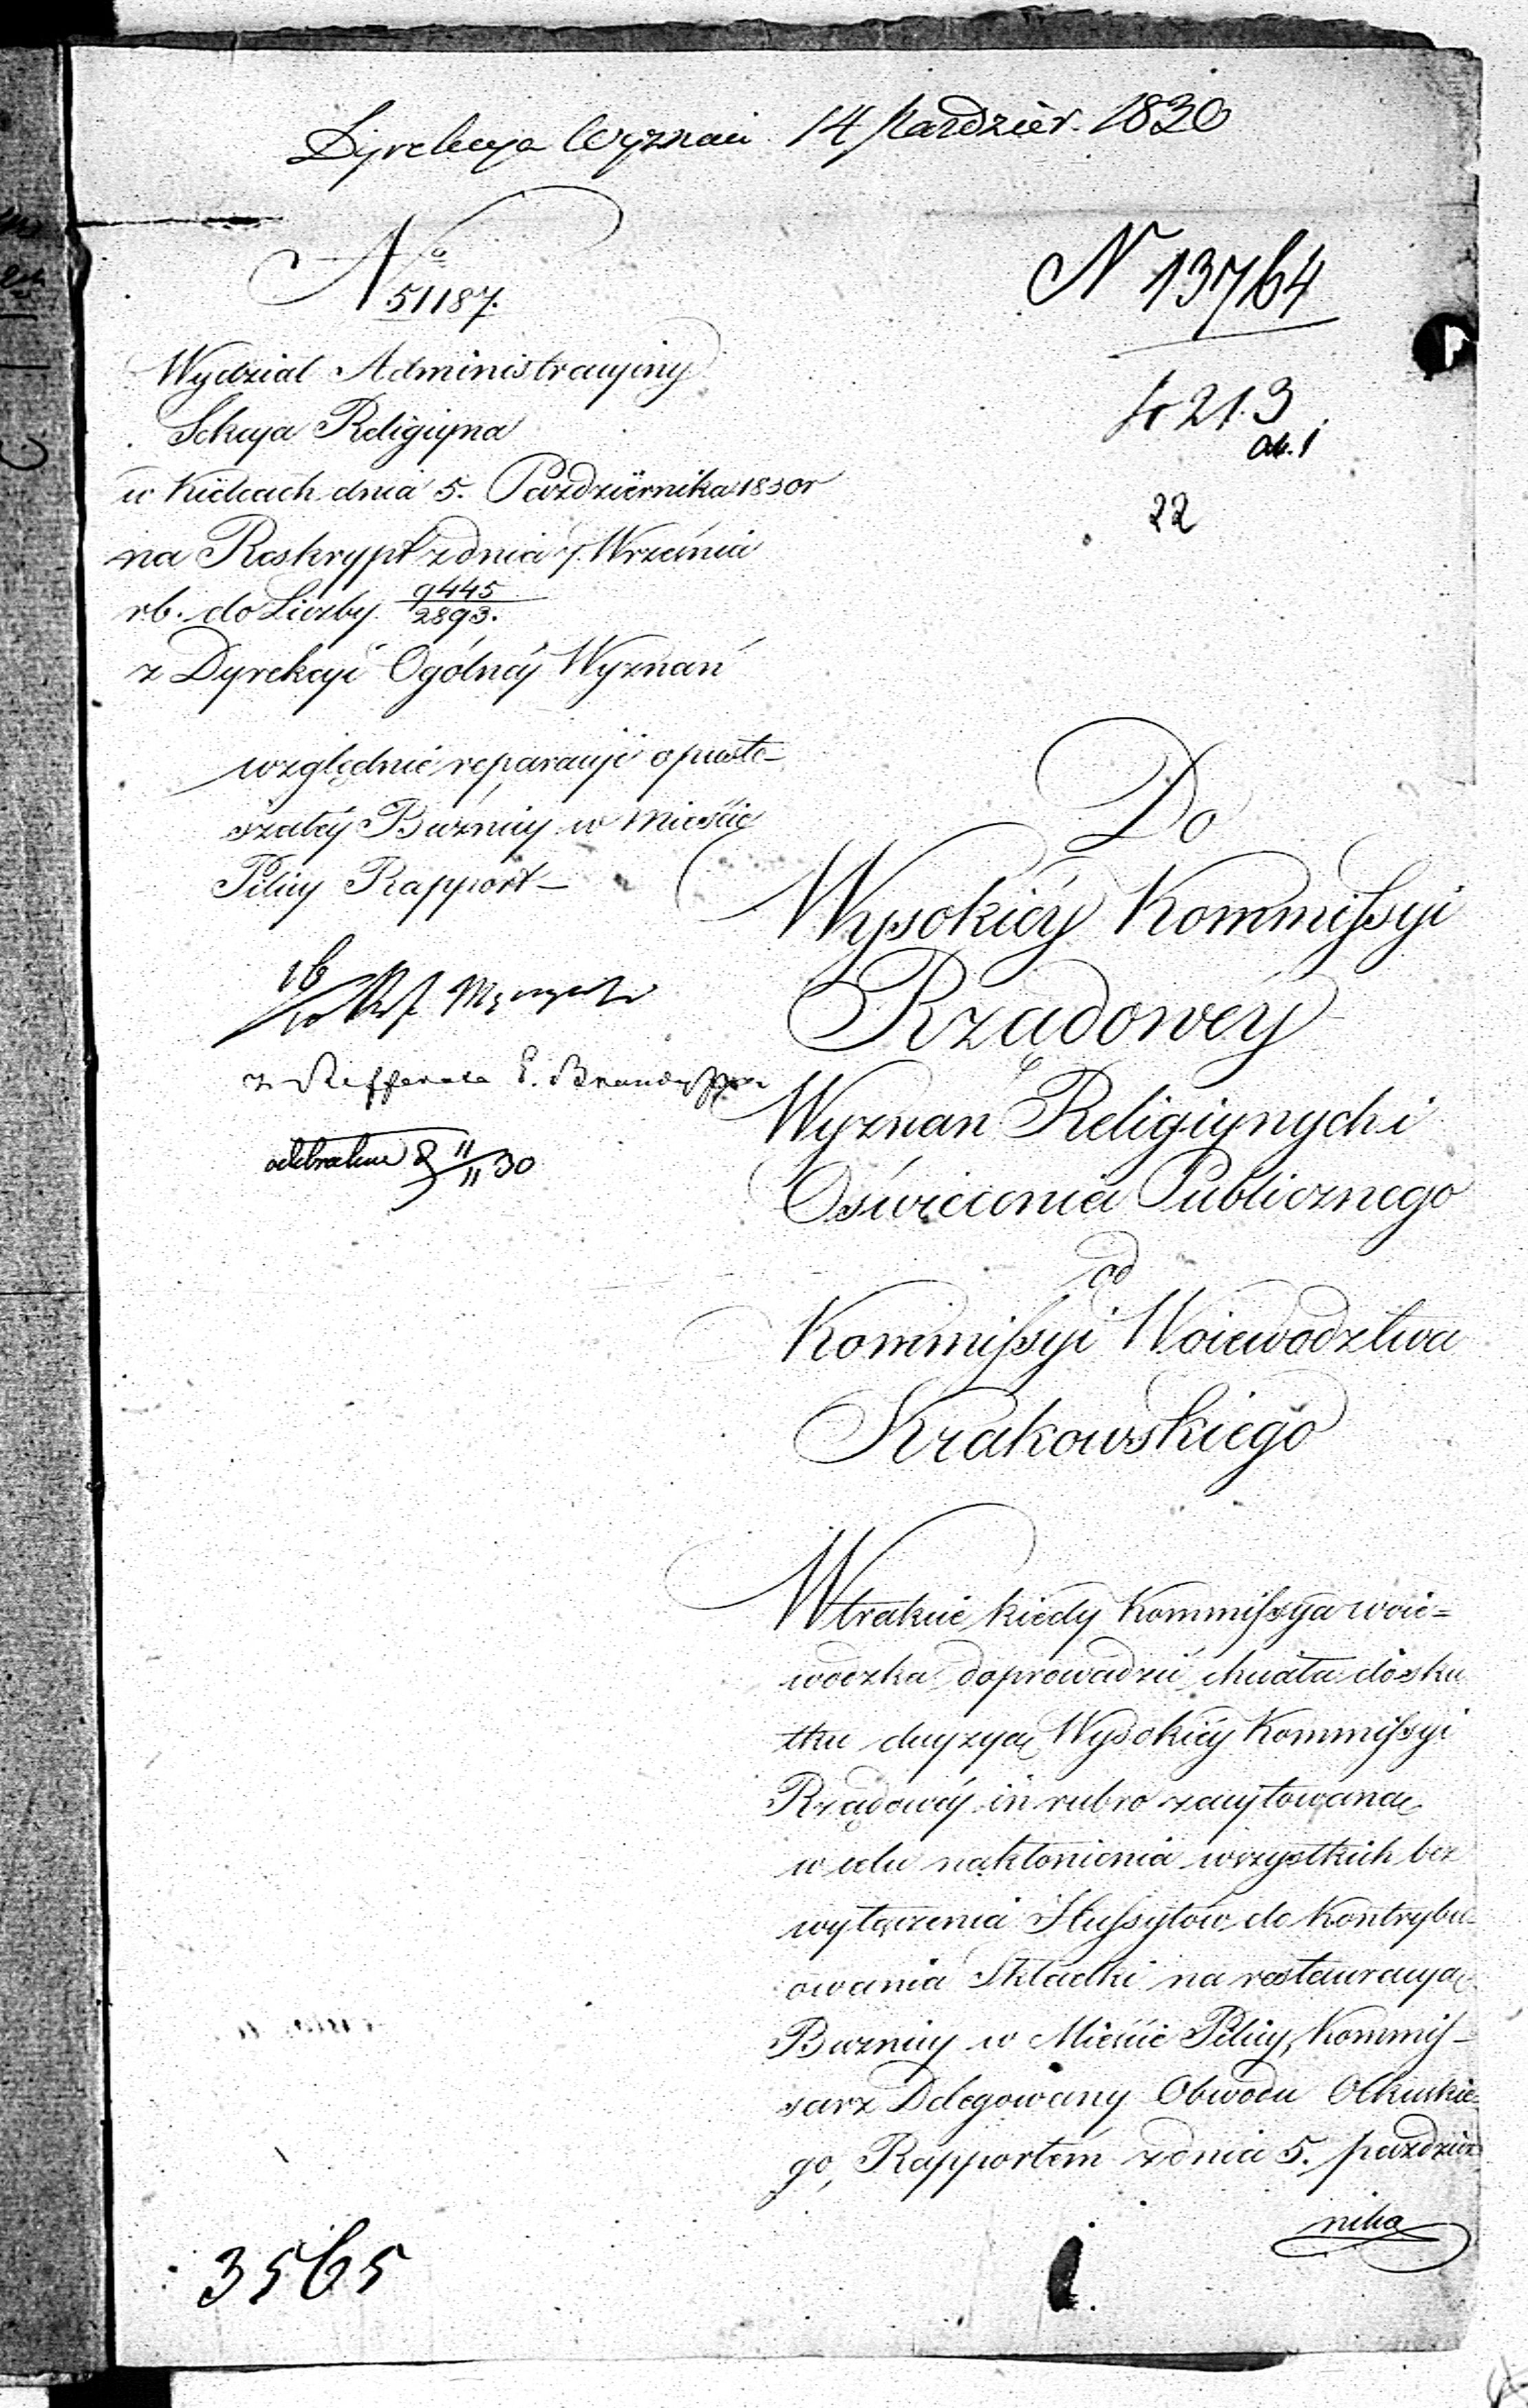 Dyrekcya Wyznań 14 Paździer. 1830
No
51187.
Wydział Administracyiny
Sekcya Religiyna
w Kielcach dnia 5. Października 1830r
na Reskrypt z dnia 7. Września
r.b. do Liczby 9445/2893.
z Dyrekcyi Ogólnéy Wyznań
względnie reparacyi opusto-
szałéy Bużnicy w Mieście
Pilicy Rapport
z Refferatu
odebrałem 8 11/11 30
N 13764
213
22
Do
Wysokiéy Kommissyi
Rządowéy
Wyznań Religiynych i
Oświecenia Publicznego
od
Kommissyi Woiewodztwa
Krakowskiego
W trakcie kiedy Kommissya woie=
wodzka doprowadzić chciała do sku
tku decyzyą Wysokiéy Kommissyi
Rządowéy in rubro zacytowaną
w celu nakłonienia wszystkich bez
wyłączenia Hussytów do Kontrybu-
owania Składki na restauracyą
Buznicy w Mieście Pilicy, Kommis-
sarz Delegowany Obwodu Olkuskie-
go, Rapportem z dnia 5. paździer
nika
3565